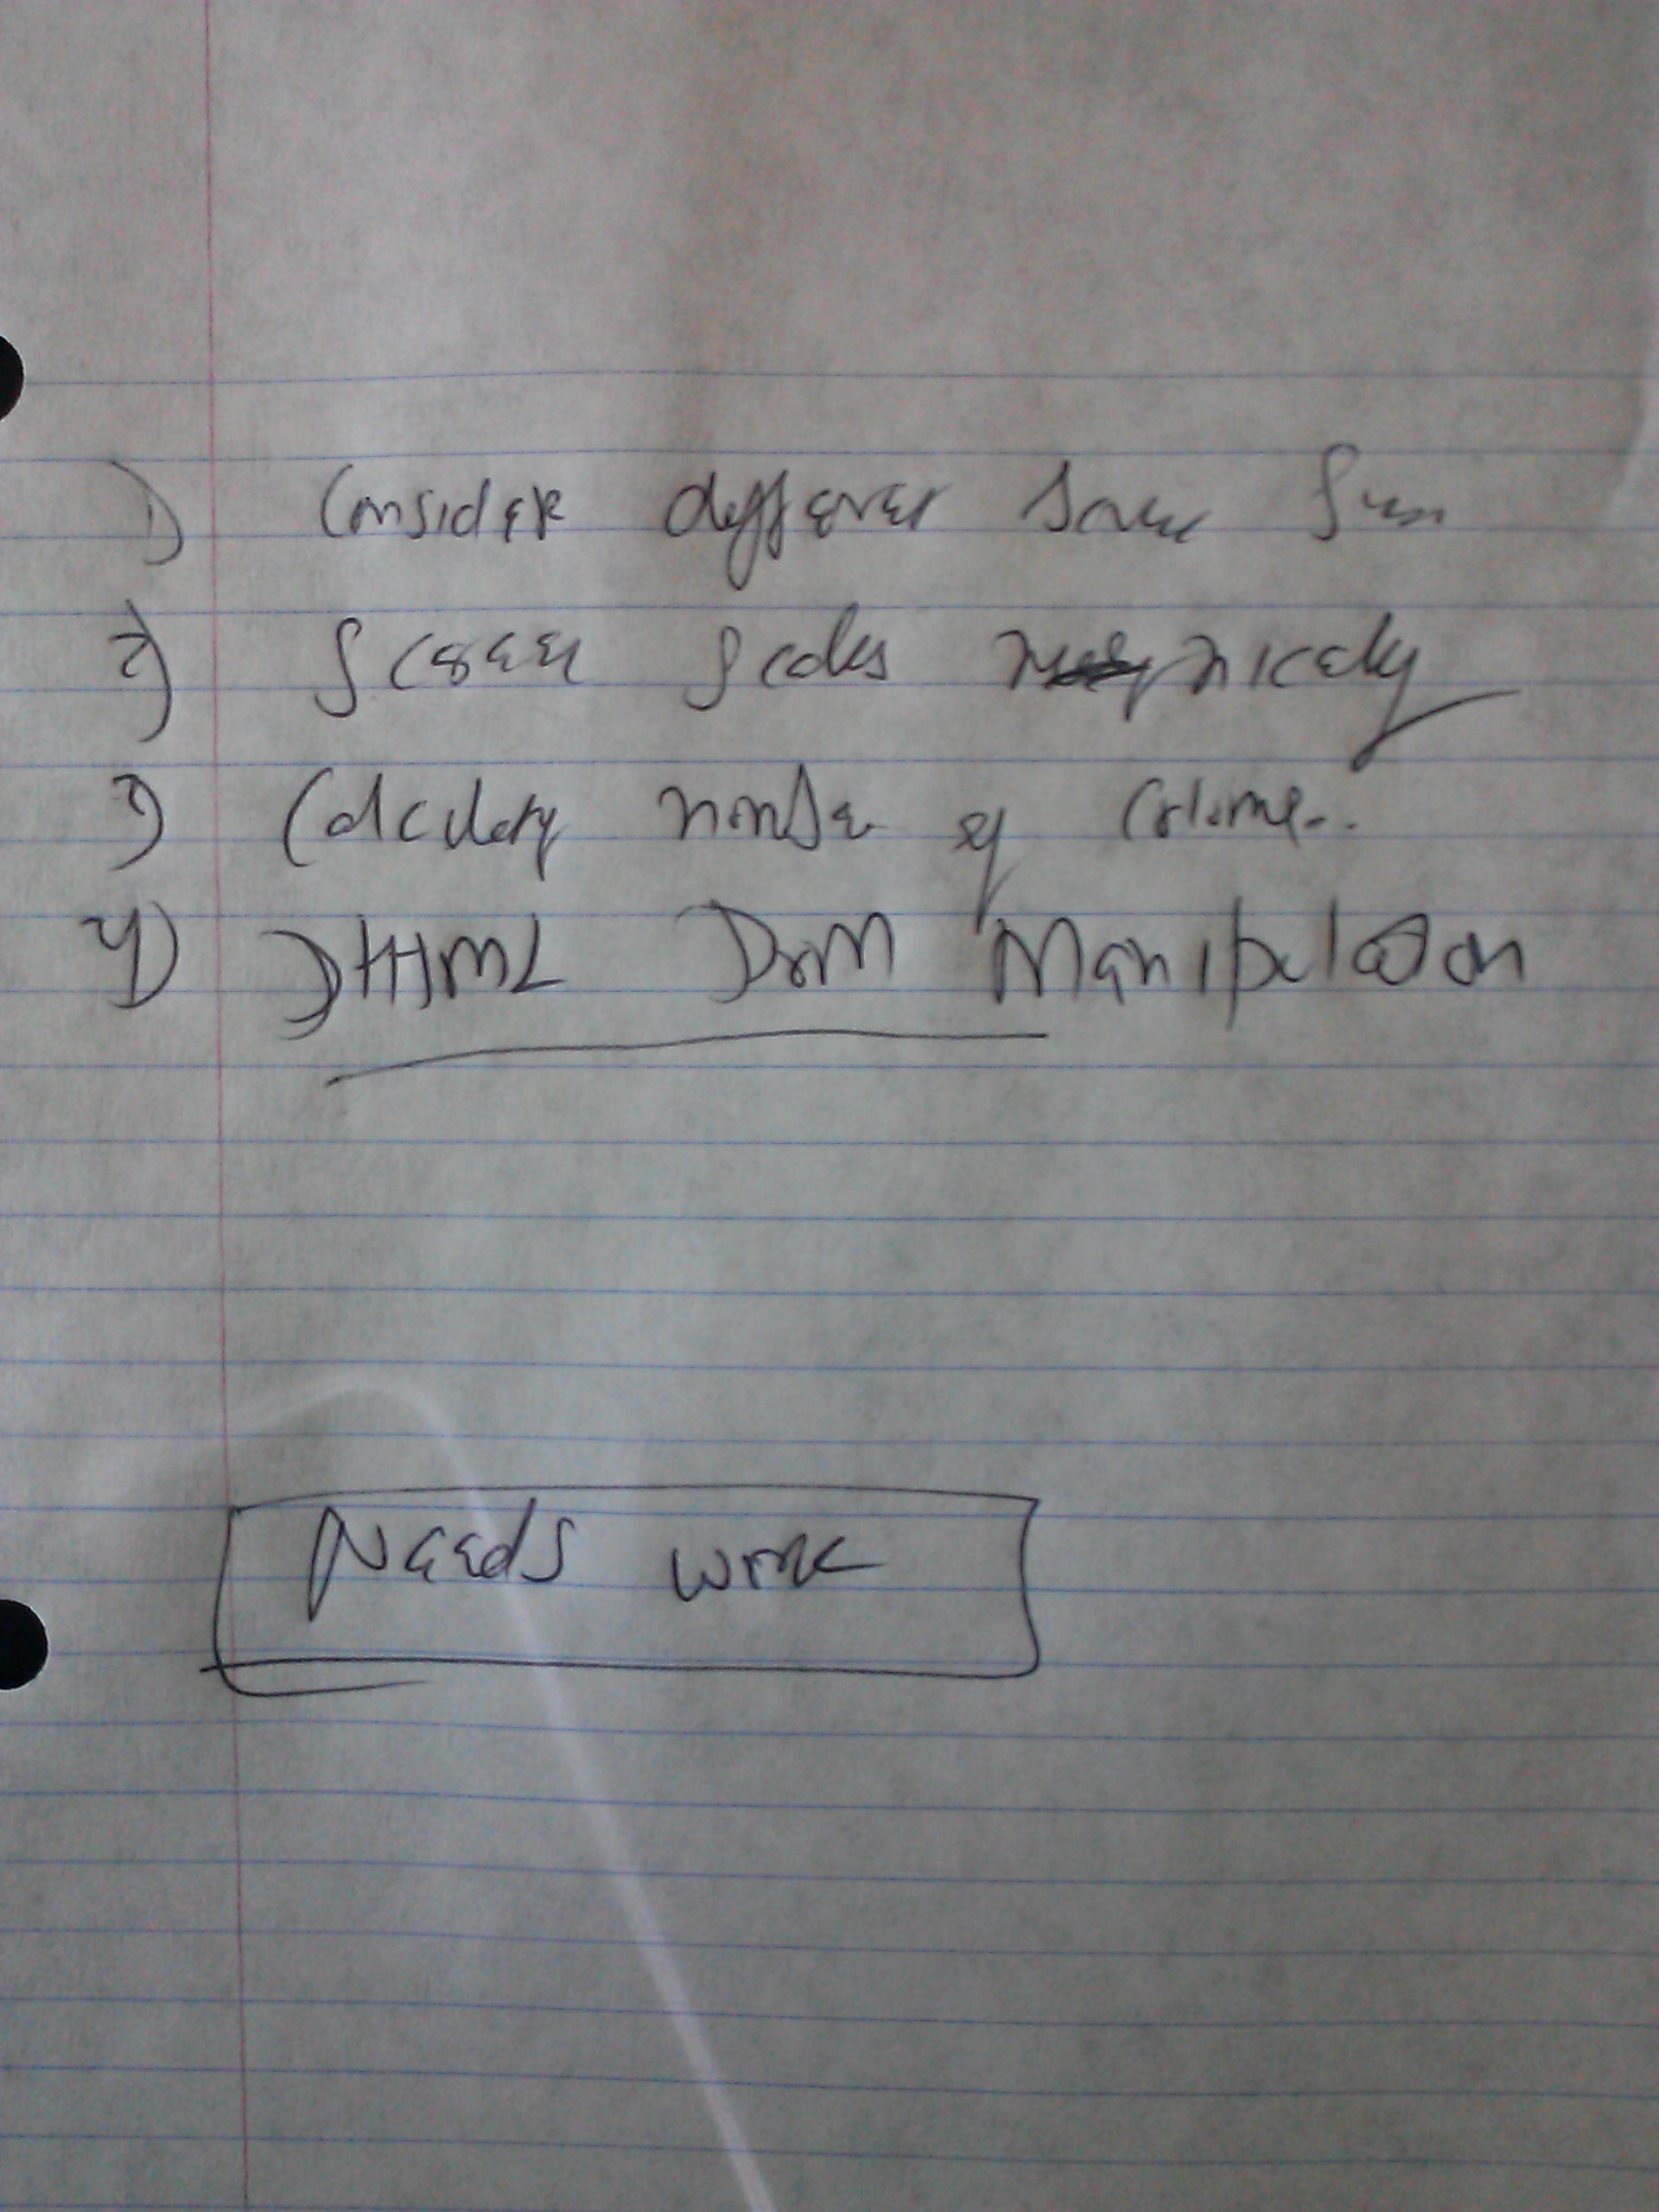 1) Consider different
2) Screen scales nicely
3) Calculating number of columns..
4) DHTML DOM Manipulation
Needs work